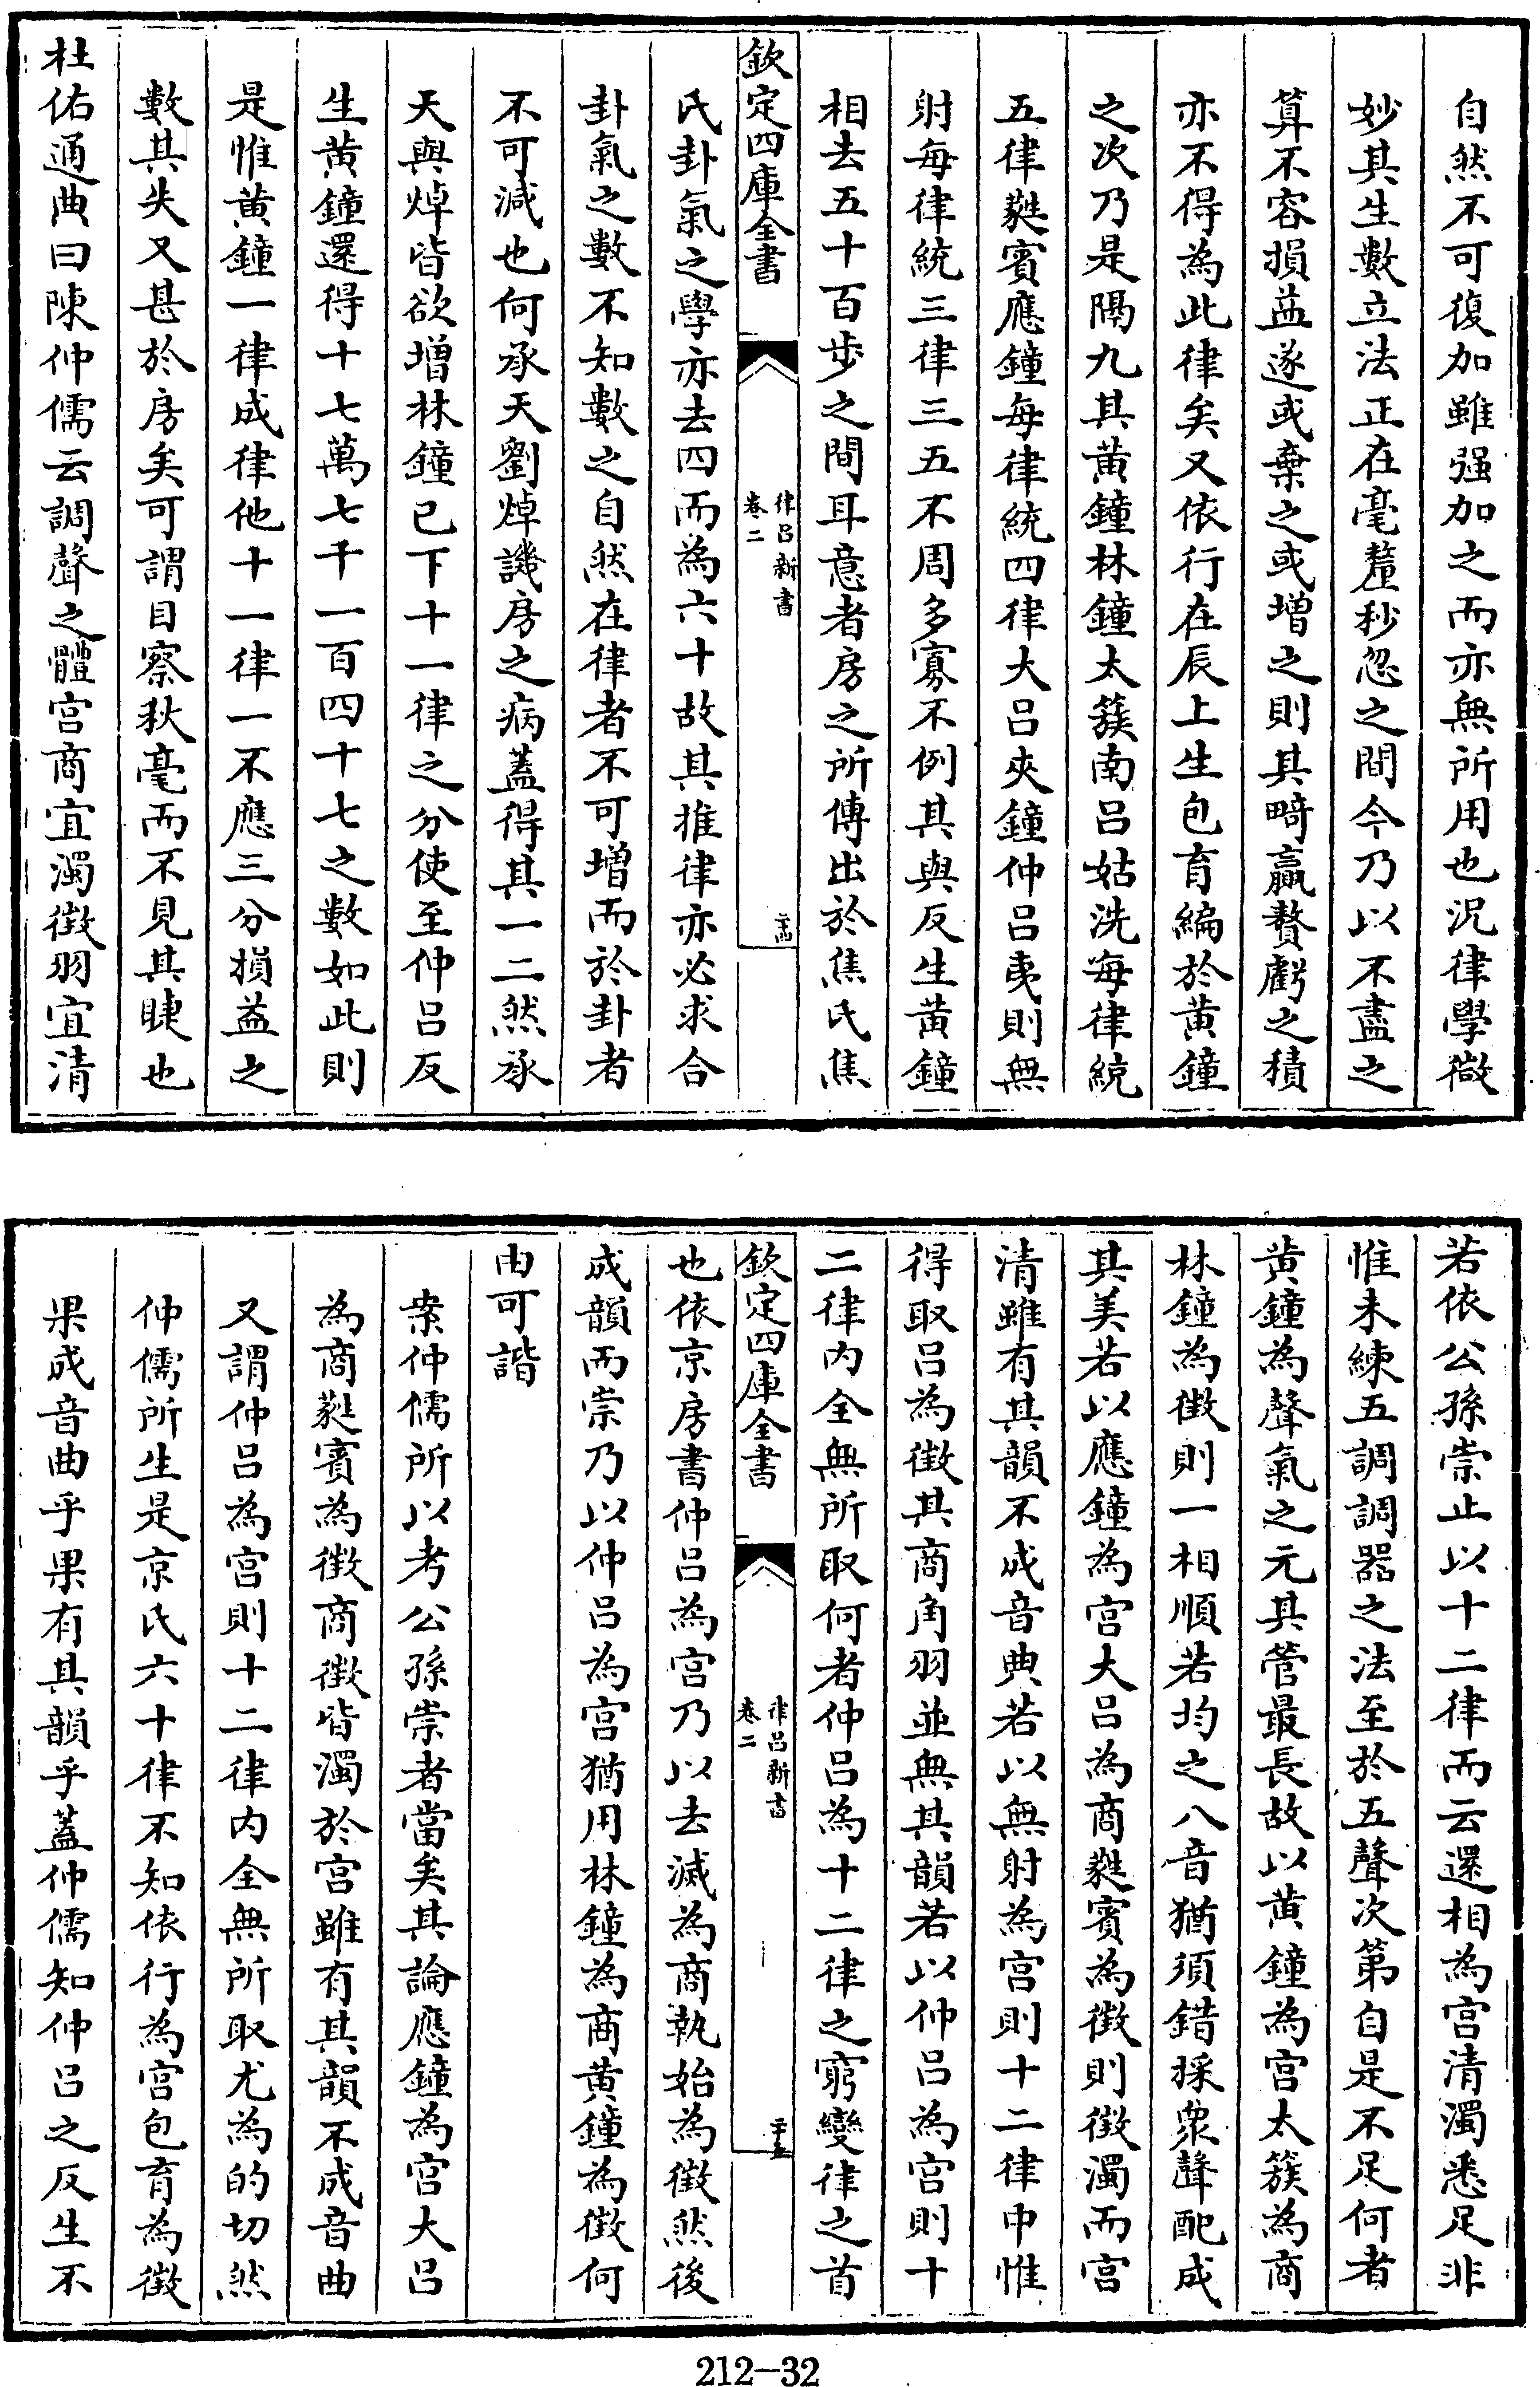 自然不可復加雖强加之而亦無所用也況律學微
妙其生數立法正在毫釐秒忽之間今乃以不盡之
算不容損益遂或棄之或增之則其畸贏贅虧之積
亦不得為此律矣又依行在辰上生包育編於黄鐘
之次乃是隔九其黄鐘林鐘太簇南呂姑洗每律統
五律蕤賓應鐘每律統四律大呂夾鐘仲呂夷則無
射每律統三律三五不周多寡不例其與反生黄鐘
相去五十百步之間耳意者房之所傳出於焦氏焦
欽定四庫全書
律呂新書
卷二
二十四
氏卦氣之學亦去四而為六十故其推律亦必求合
卦氣之數不知數之自然在律者不可增而於卦者
不可減也何承天劉焯譏房之病蓋得其一二然承
天與焯皆欲增林鐘已下十一律之分使至仲呂反
生黄鐘還得十七萬七千一百四十七之數如此則
是惟黄鐘一律成律他十一律一不應三分損益之
數其失又甚於房矣可謂目察秋毫而不見其睫也
杜佑通典曰陳仲儒云調聲之體宫商宜濁徵羽宜清
若依公孫崇止以十二律而云還相為宫清濁悉足非
惟未練五調調器之法至於五聲次第自是不足何者
黄鐘為聲氣之元其管最長故以黄鐘為宫太簇為商
林鐘為徵則一相順若均之八音猶須錯採衆聲配成
其美若以應鐘為宫大呂為商蕤賓為徵則徵濁而宫
清雖有其韻不成音典若以無射為宫則十二律中惟
得取呂為徵其商角羽並無其韻若以仲呂為宫則十
二律内全無所取何者仲呂為十二律之窮變律之首
欽定四庫全書
律呂新書
卷二
二十五
也依京房書仲呂為宫乃以去滅為商執始為徵然後
成韻而崇乃以仲呂為宫猶用林鐘為商黄鐘為徵何
由可諧
案仲儒所以考公孫崇者當矣其論應鐘為宫大呂
為商蕤賓為徵商徵皆濁於宫雖有其韻不成音曲
又謂仲呂為宫則十二律内全無所取尤為的切然
仲儒所生是京氏六十律不知依行為宫包育為徵
果成音曲乎果有其韻乎蓋仲儒知仲呂之反生不
212-32